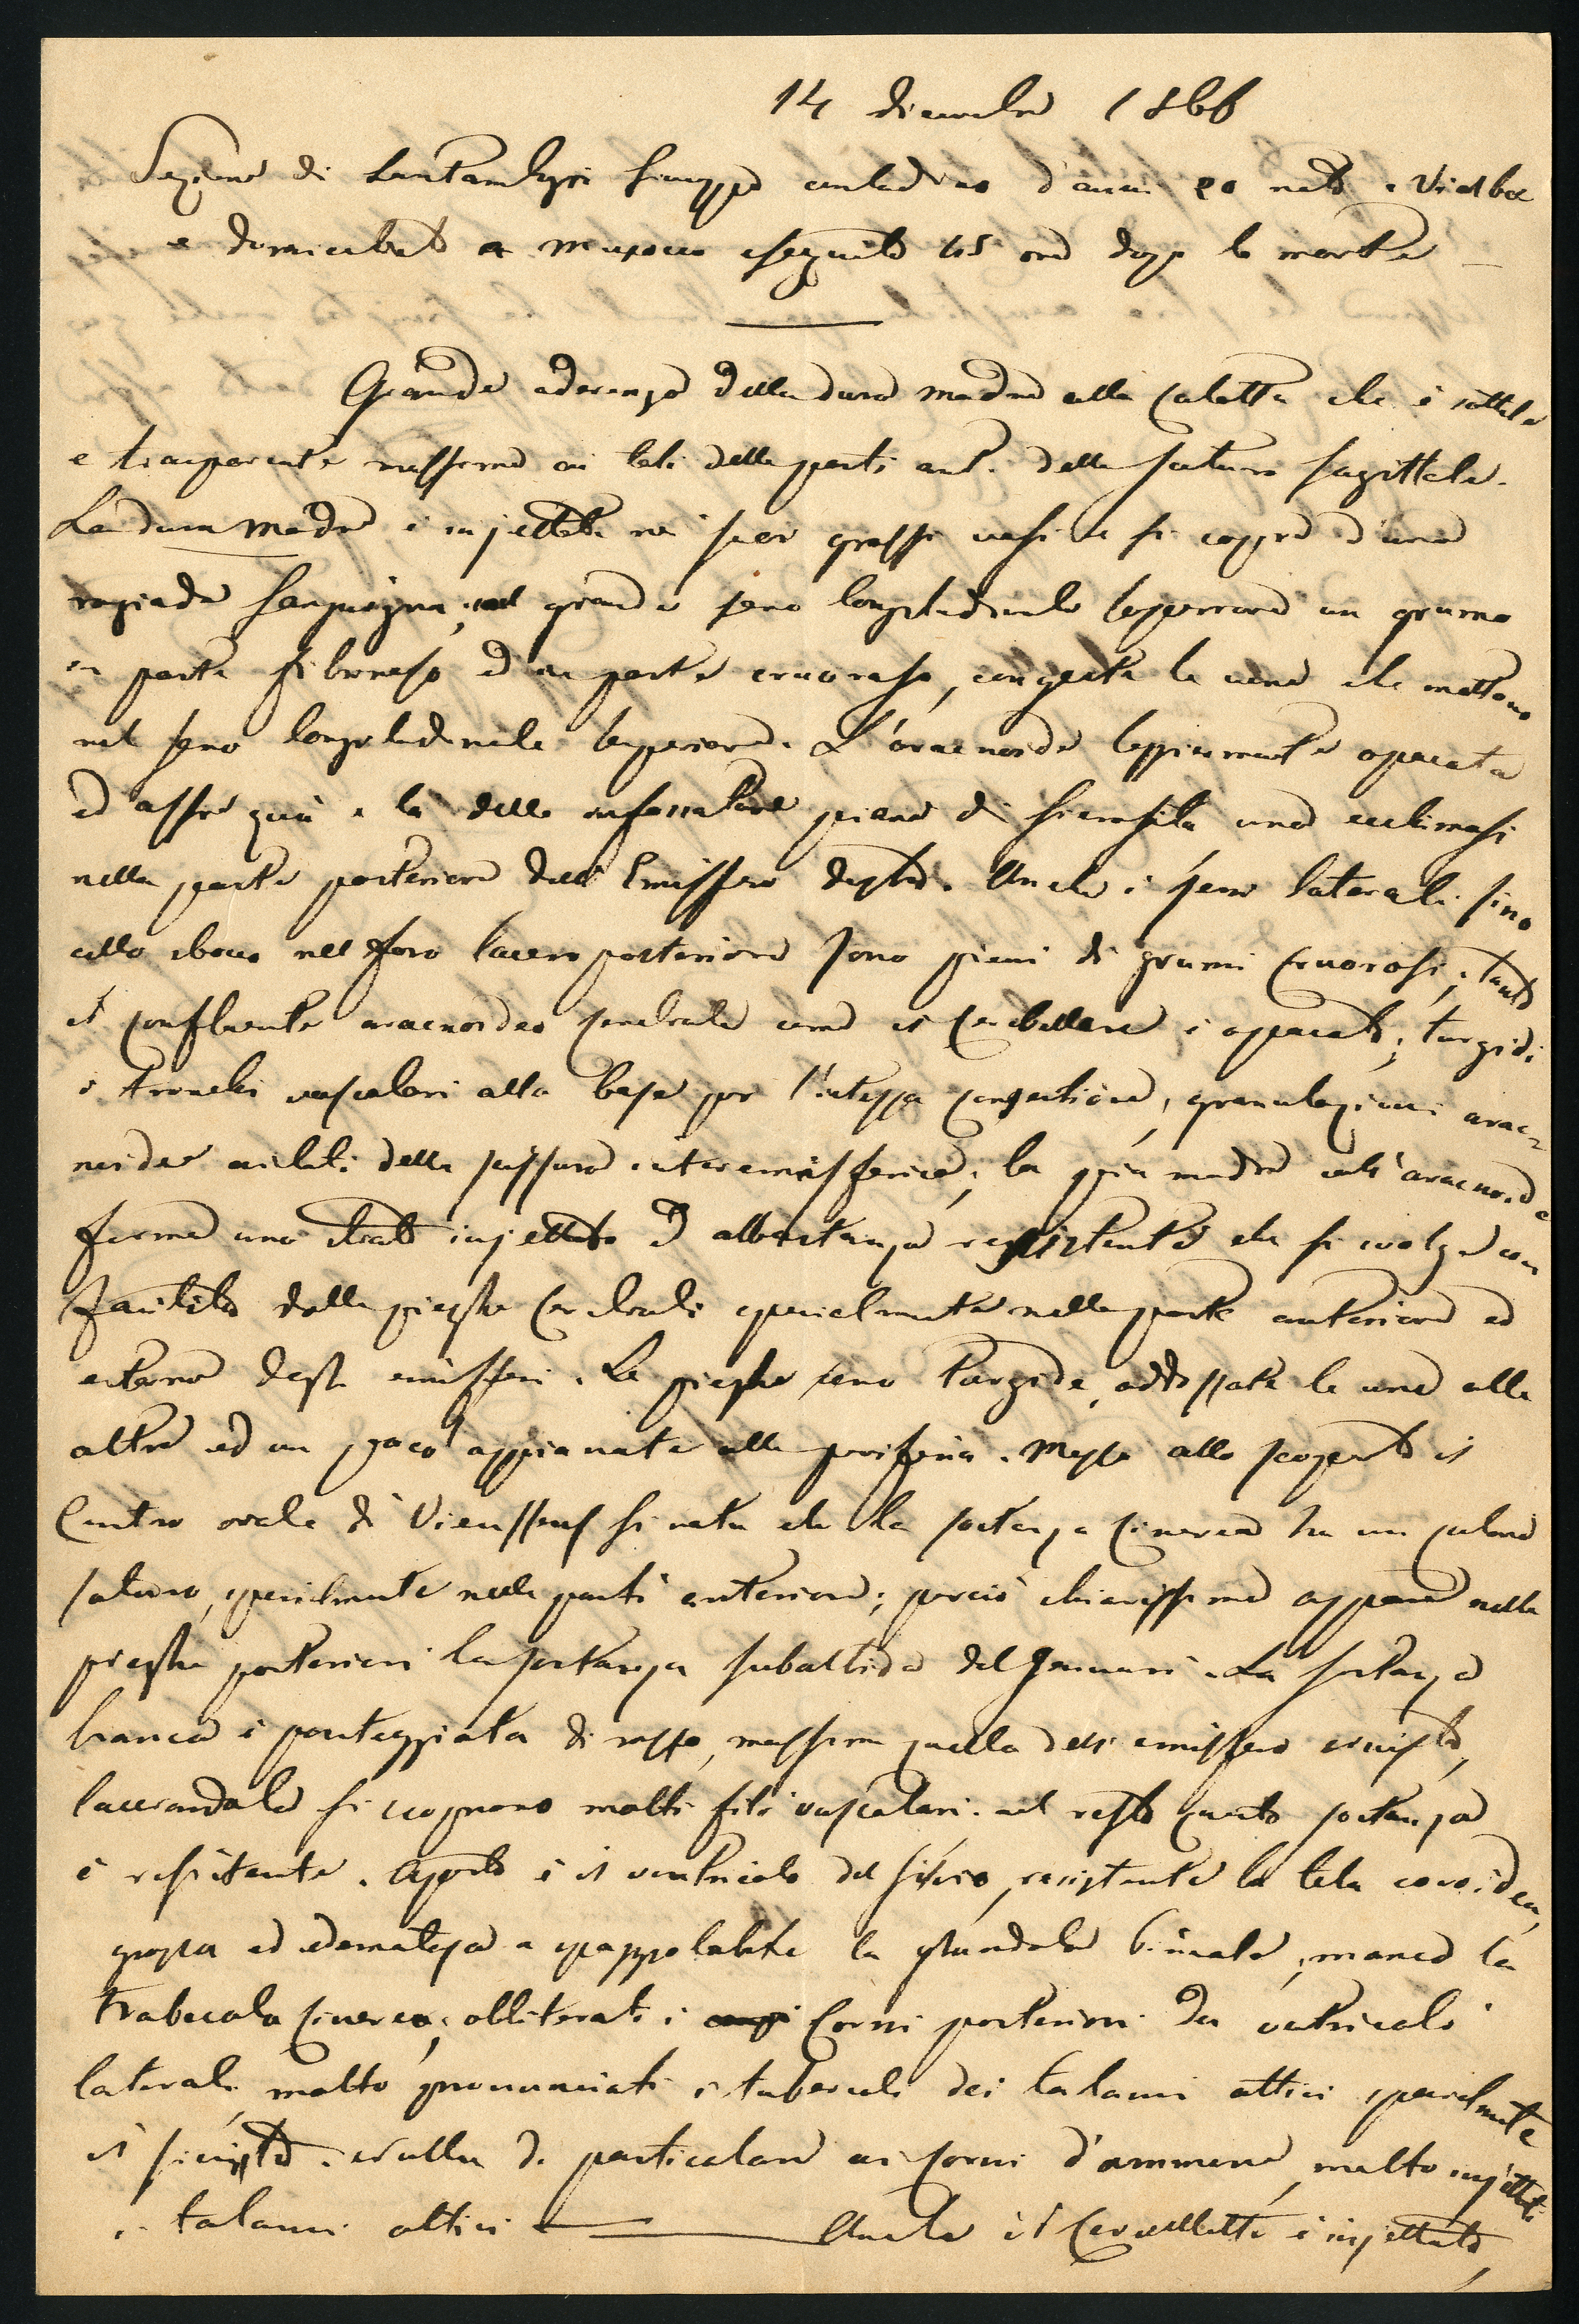 14 dicembre 1866
Sezione di Santambrogi Giuseppe contadino d'anni 20 nato a Vialba
e domiciliato a Musocco eseguita 45 ore dopo la morte —
Grande aderenza della dura madre alla calotta che è sottile
e trasparente massime ai lati della parti ant. della sutura sagittale.
La dura madre è injettata ne' suoi grossi vasi e si copre d'una
rugiada sanguigna; nel grande seno longitudinale superiore un grumo
in parte fibrinoso ed in parte cruoroso, congeste le vene che mettono
nel seno longitudinale superiore. L'aracnoide leggiermente opacata
ed offre quà e là delle infossature piene di sierosità una ecchimosi
nella parte posteriore dell'Emisfero destro. Anche i seni laterali sino
allo sbocco nel foro lacero posteriore sono pieni di grumi cruorosi; tanto
il confluente aracnoideo cerebrale come il cerebellare è opacato; turgidi
i tronchi vascolari alla base per l'intessa congestione, granulazioni arac-
noidee ai lati della scissura interemisferica; la pia madre coll'aracnoide
forma uno strato injettato ed abbastanza resistente che si svolge con
facilità dalle pieghe cerebrali specialmente nella parte anteriore ed
esterna degli emisferi. Le pieghe sono turgide, addossate le une alle
altre ed un poco appianate alla periferia. Messo allo scoperto il
Centro ovale di Vieussens si nota che la sostanza cinerea ha un colore
saturo, specialmente nelle parti anteriori; perciò chiarissima appare nelle
pieghe posteriori la sostanza subalbida del Gennari. La sostanza
bianca è punteggiata di rosso, massime quella dell'emisfero sinistro,
lacerandola si scorgono molti fili vascolari. nel resto questa sostanza
è resistente. Aperto è il ventricolo del Silvio, resistente la tela coroidea,
grossa ed edematosa e spappolabile la glandola pineale, manca la
trabecola cinerea; obliterati i Corni posteriori dei ventricoli
laterali, molto pronunciati i tubercoli dei talami ottici specialmente
il sinistro. Nulla di particolare ai corni d'ammone, molto injettati
i talami ottici — Anche il Cervelletto è injettato,